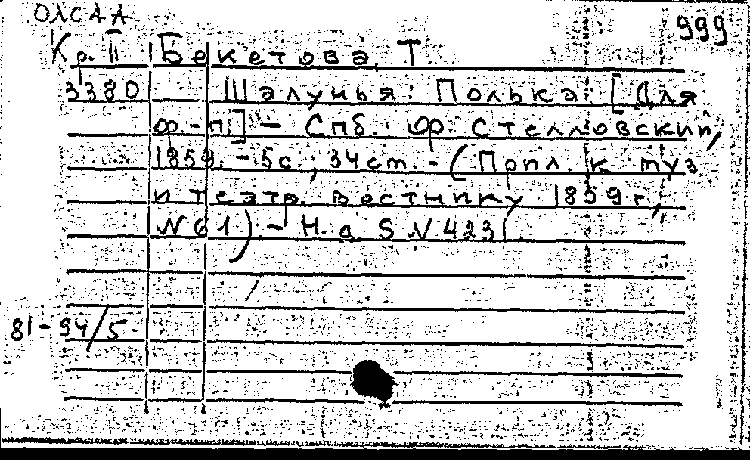 ОЛСАА
999
Кр. П Бекетова, Т.
3380 Шалунья: Полька: [Для
ф.-п.] - Спб.: Ф. Стелловский,
1859. - 5с.; 34см. - (Попл. к муз.
и театр. вестнику 1859 г.,
N 61). - Н. д. S N 4231.
81-94/5.